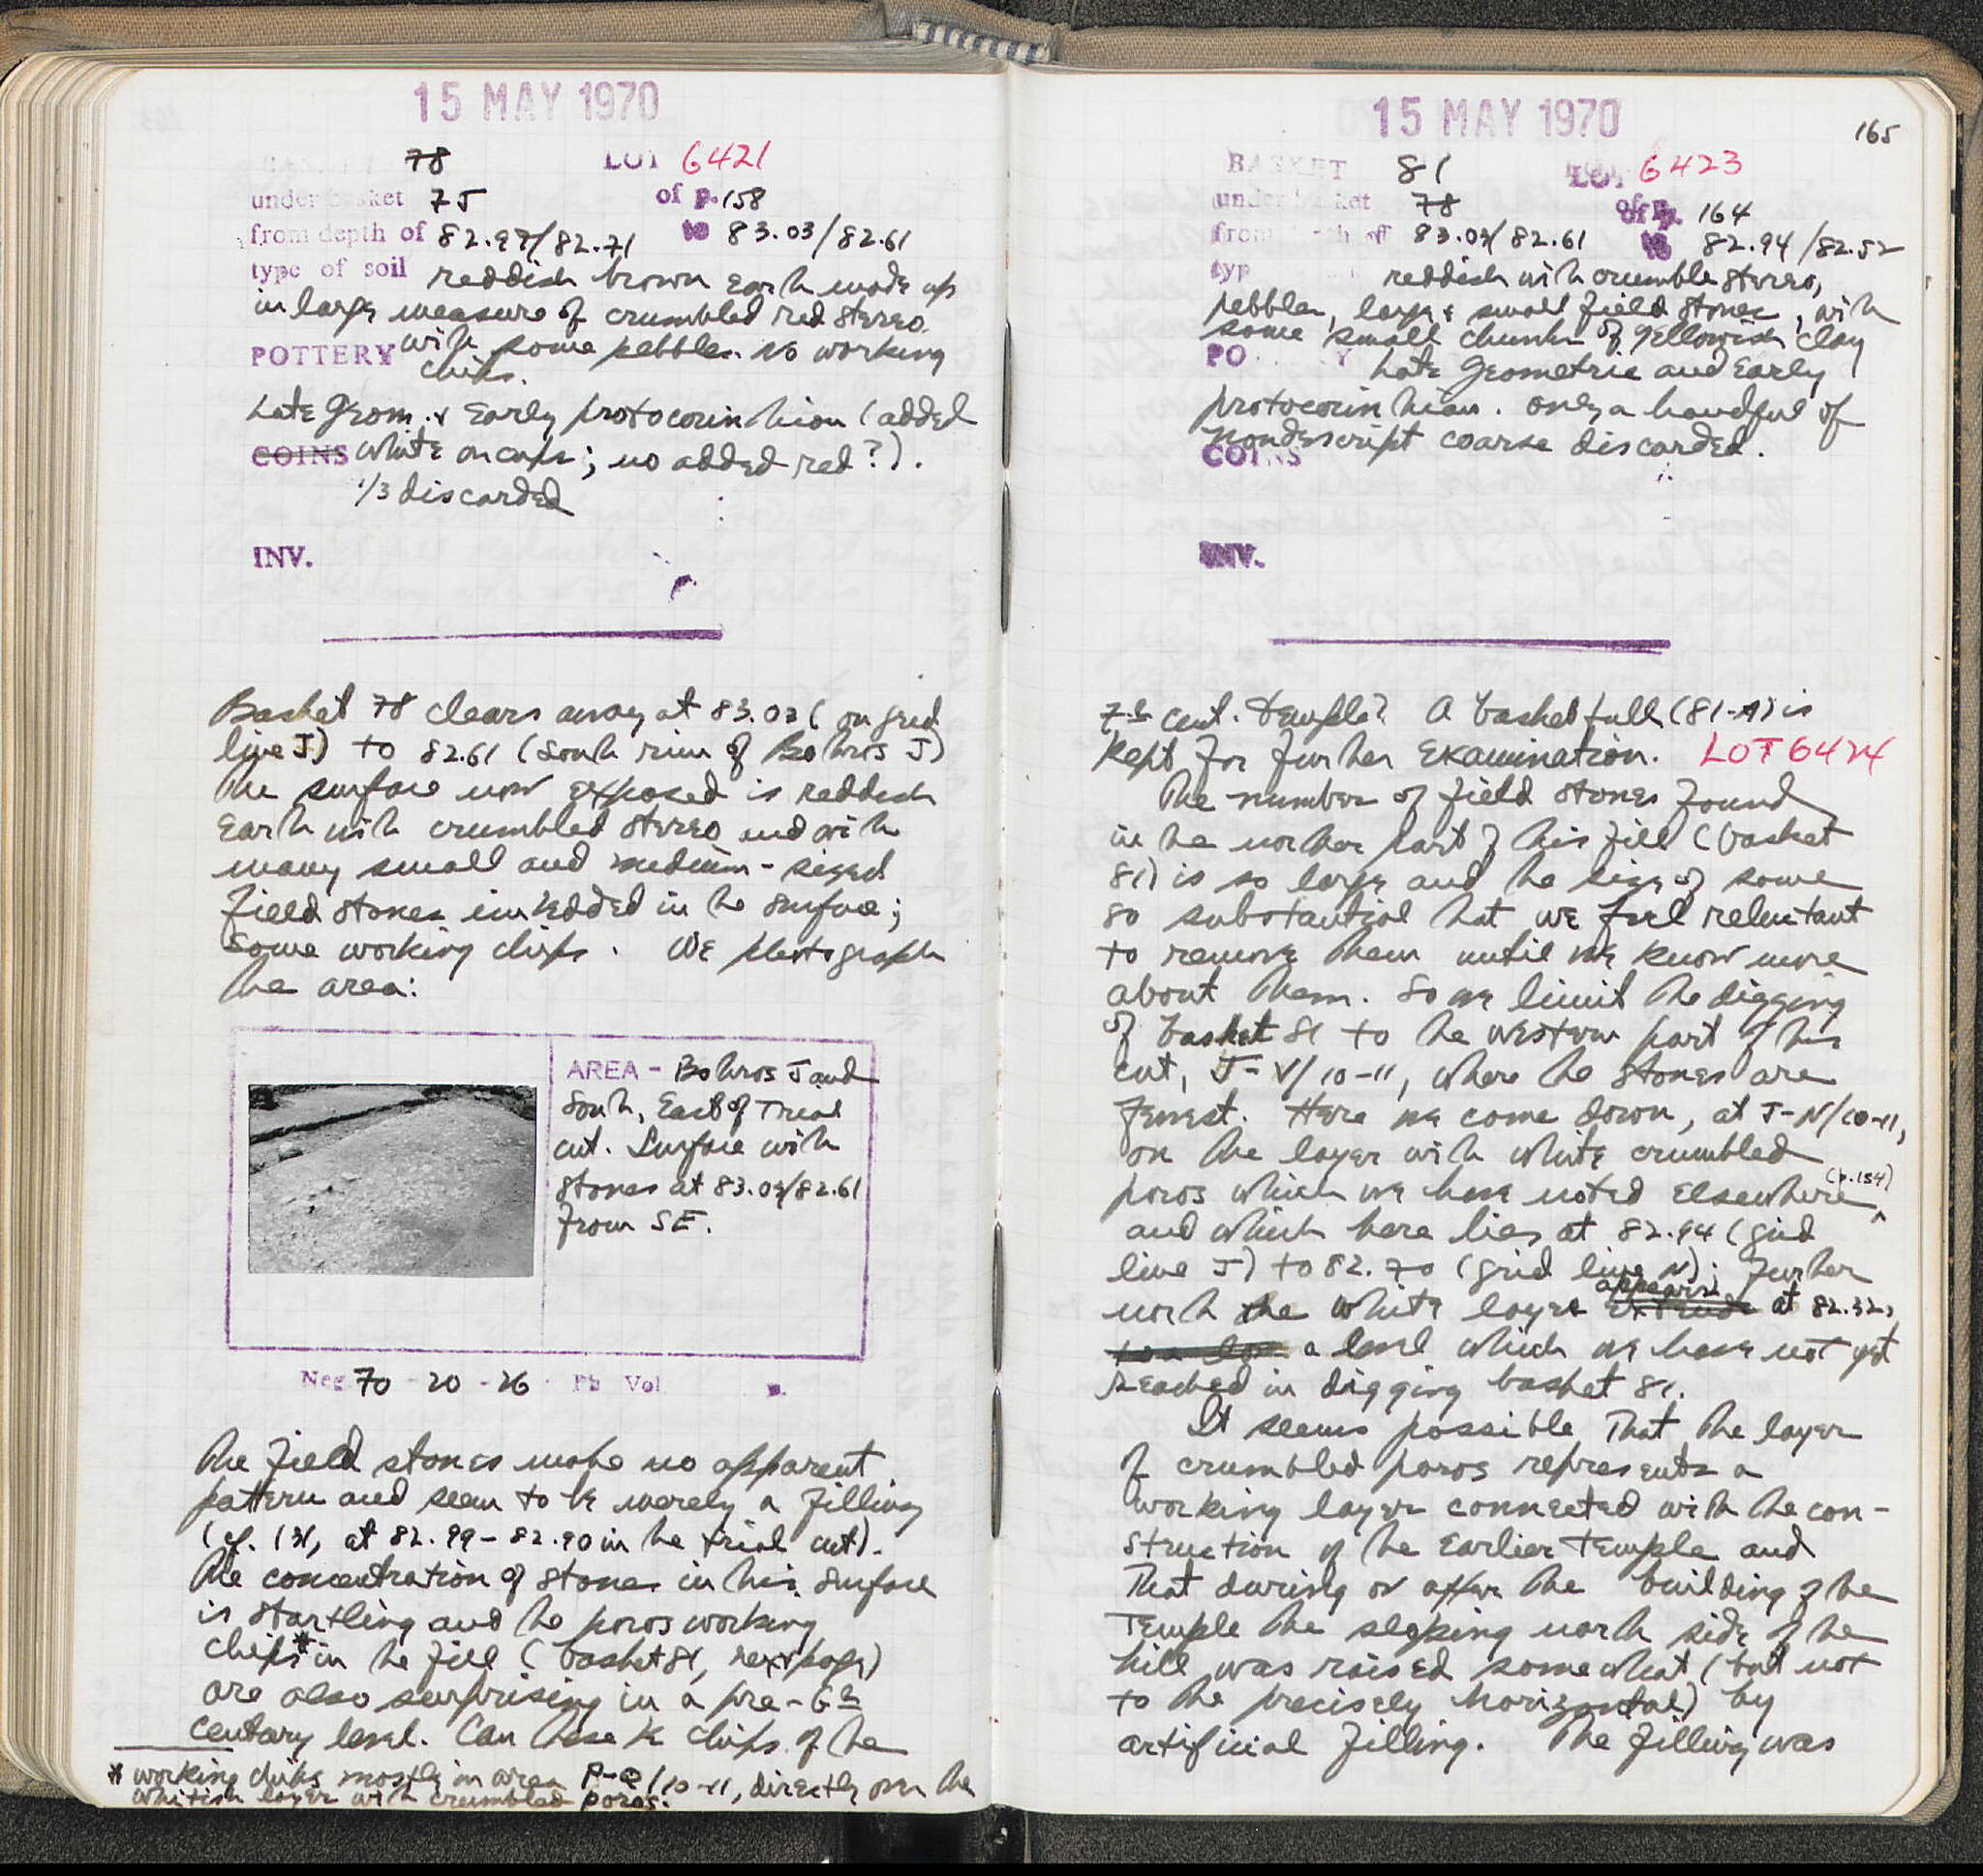 15 MAY 1970
78 LOT 6421
under basket 75 of p. 158
from depth of 82.97/82.71 to 83.03/82.61
type of soil reddish brown earth made up
in large measure of crumbled red stereo
with some pebbles. No working
POTTERY chips.
Late Geom. & Early protocorinthian (added
COINS white on cups; no added red?).
1/3 discarded
INV.
Basket 78 clears away at 83.03 (on grid
line J) to 82.61 (south rim of Bothros J)
The surface now exposed is reddish
earth with crumbled stereo and with
many small and medium-sized
field stones imbedded in the surface;
some working chips. We photograph
the area:
AREA - Bothros J and
South, East of Trial
cut. Surface with
stones at 83.03/82.61
from SE.
Neg 70-20-26 Ph Vol p.
The field stones make no apparent
pattern and seem to be merely a filling
(cf. 131, at 82.99-82.90 in the trial cut).
The concentration of stones in this surface
is startling and the poros working
chips* in the fill (basket 81, next page)
are also surprising in a pre-6th
century level. Can these be chips of the
* working chips mostly in area P-Q/10-11, directly over the
whitish layer with crumbled poros.
15 MAY 1970
165
BASKET 81 LOT 6423
under basket 78 of p. 164
from depth of 83.03/82.61 to 82.94/82.52
typ reddish with crumble stereo,
pebbles, large & small field stones, with
some small chunks of yellowish clay
PO Y Late Geometric and Early
protocorinthian. Only a handful of
nondescript coarse discarded.
COINS
INV.
7th cent. temple? A basket full (81-A) is
kept for further examination. LOT 6424
The number of field stones found
in the northern part of this fill (basket
81) is so large and the size of some
so substantial that we feel reluctant
to remove them until we know more
about them. So we limit the digging
of basket 81 to the western part of this
cut, J-V/10-11, where the stones are
fewest. Here we come down, at J-N/10-11,
on the layer with white crumbled
poros which we have noted elsewhere (p.154)
and which here lies at 82.94 (grid
line J) to 82.70 (grid line N); further
north the white layer appears at 82.32,
a level which we have not yet
reached in digging basket 81.
It seems possible that the layer
of crumbled poros represents a
working layer connected with the con-
struction of the earlier temple and
that during or after the building of the
Temple the sloping north side of the
hill was raised somewhat (but not
to the precisely horizontal) by
artificial filling. The filling was